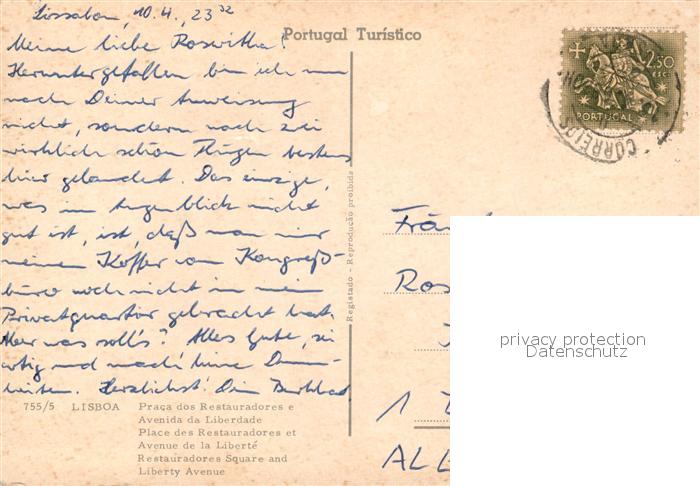 Lissabon, 10.4., 23 32
Meine liebe Roswitha!
Heruntergefallen bin ich nun
nach Deiner Anweisung
nicht, sondern nach zwei
wirklich schön Flügen bestens
hier gelandet. Das einzige,
was im Augenblick nicht
gut ist, ist, daß man mir
meinen Koffer vom Kongreß-
büro noch nicht in mein
Privatquartier gebracht hat.
Aber was soll's? Alles Gute, sei
artig und mach' keine Dumm-
heiten. Herzlichst! Dein
755/5 LISBOA Praça dos Restauradores e
Avenida da Liberdade
Place des Restauradores et
Avenue de la Liberté
Restauradores Square and
Liberty Avenue
Portugal Turístico
Registado - Reprodução proibida
2$50
ESC.
PORTUGAL
CORREIOS
Frä
Ros
1
ALL
privacy protection
Datenschutz